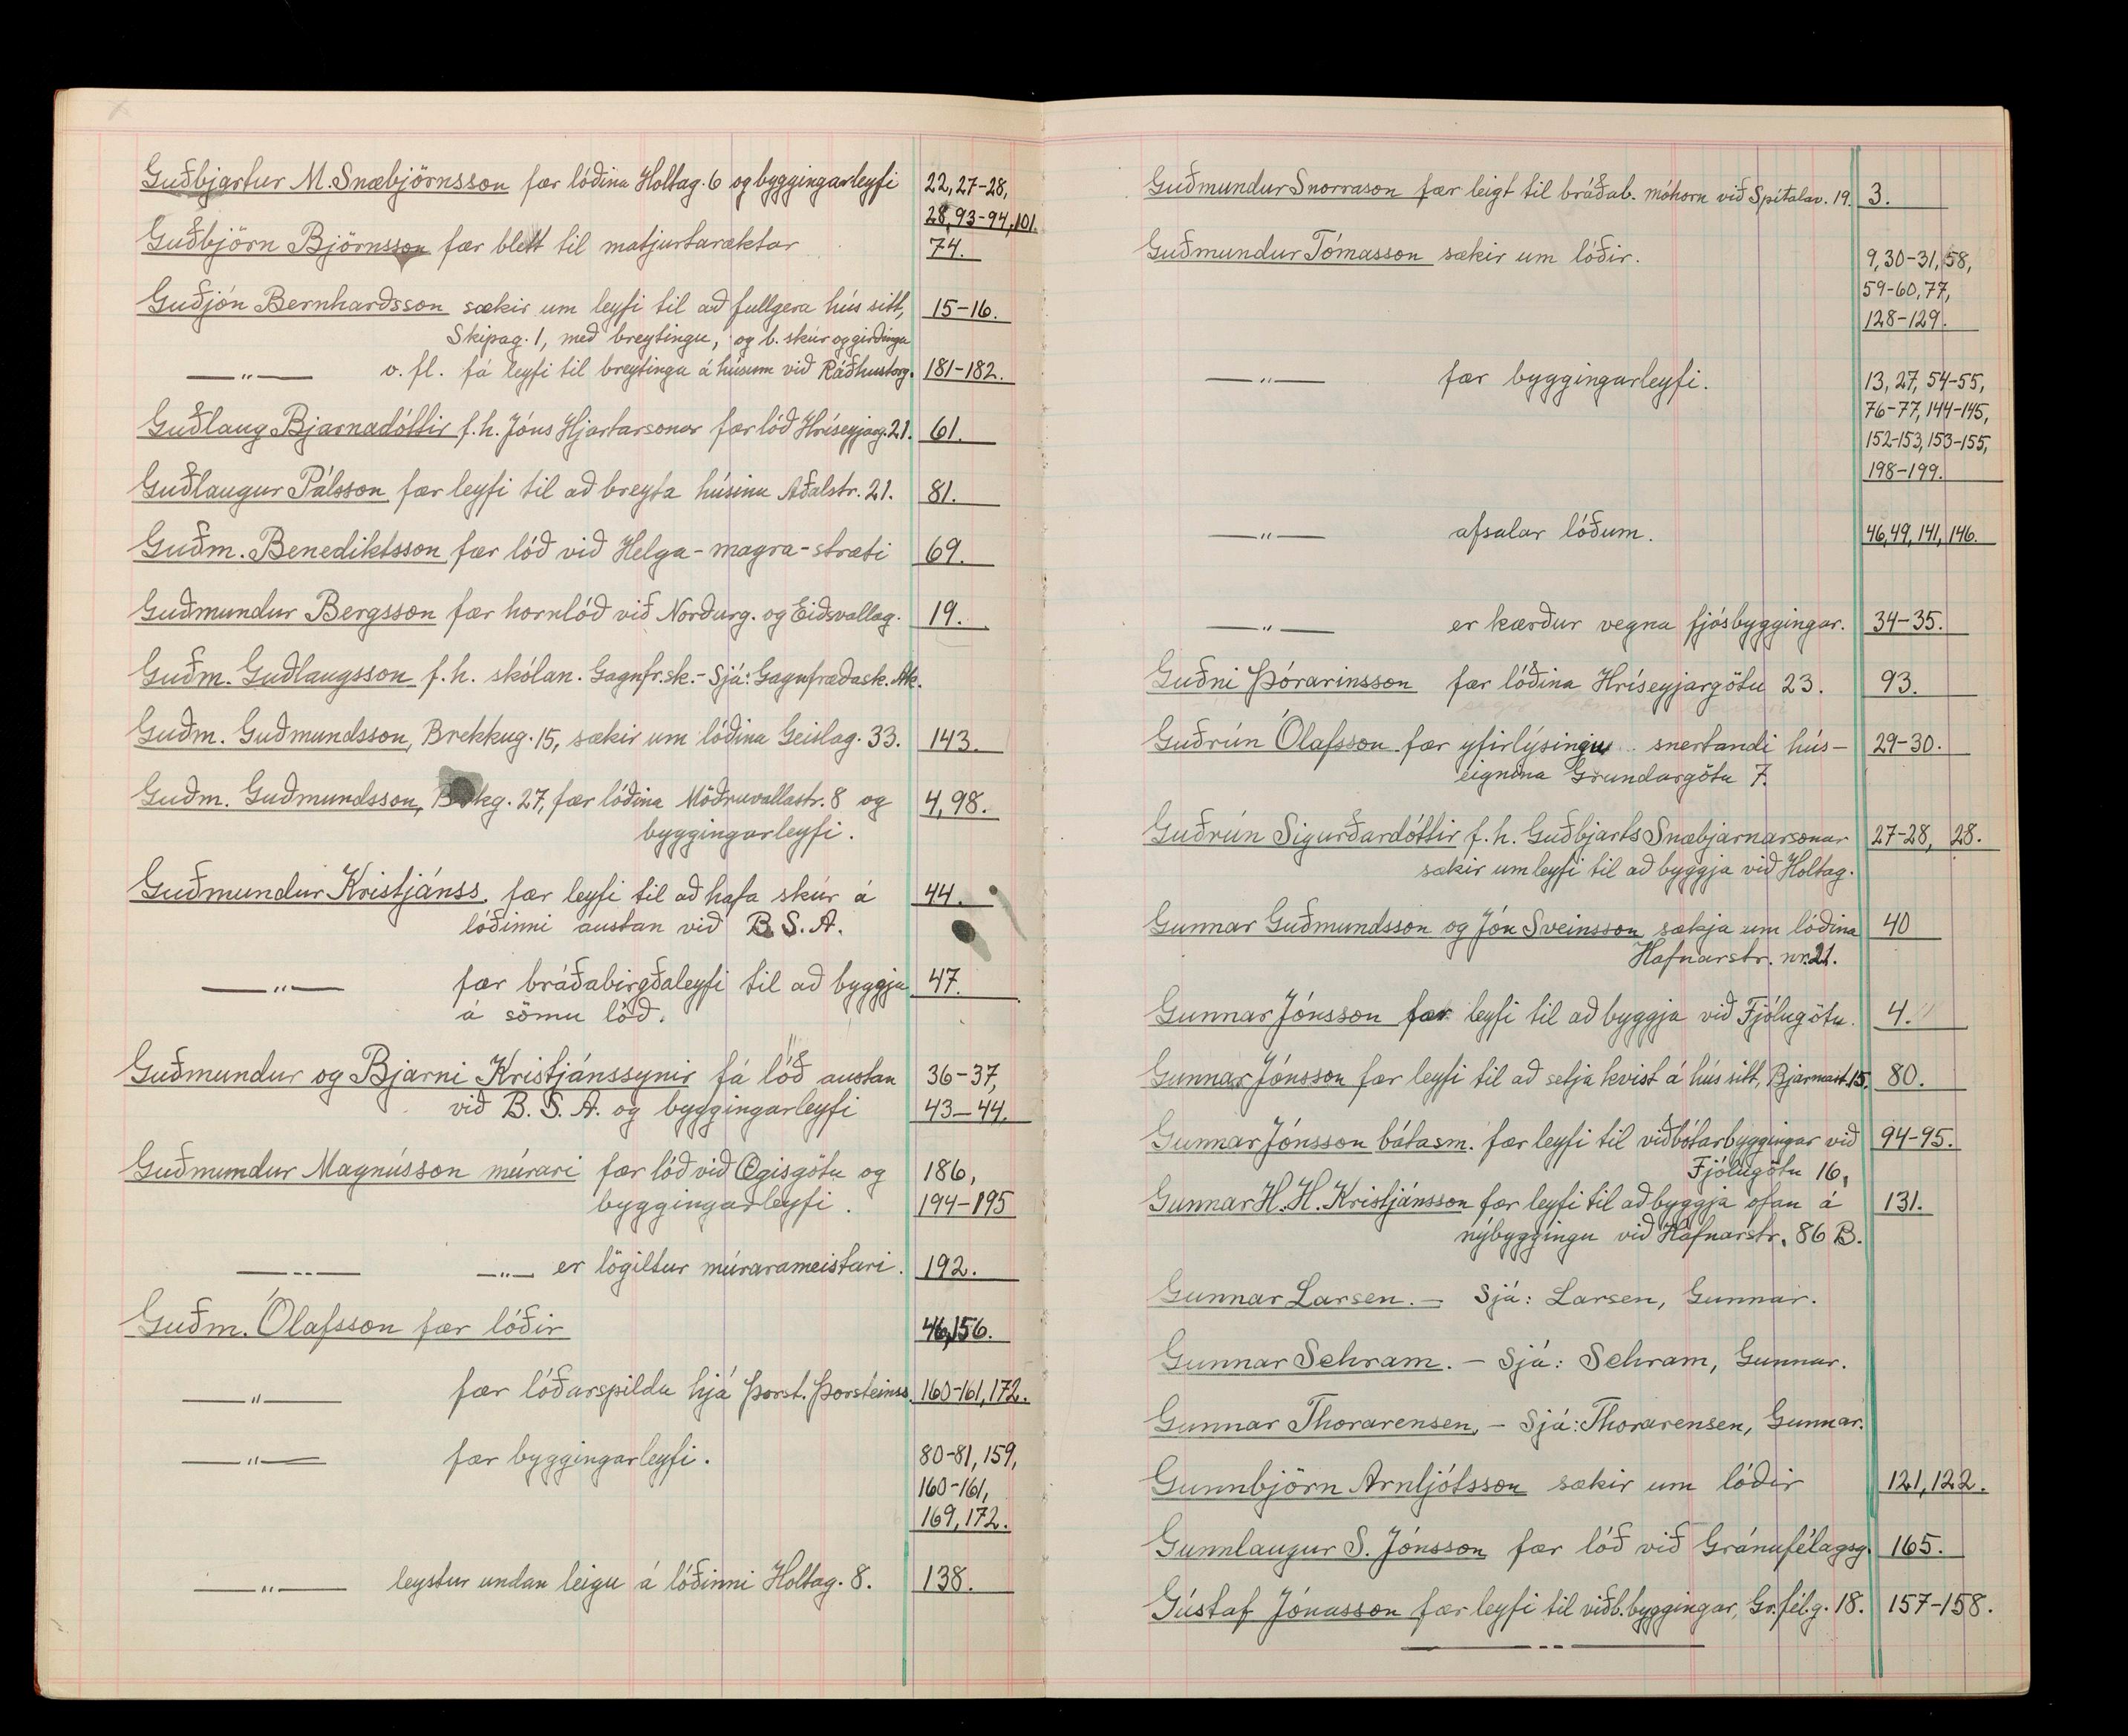 Guðbjartur M. Snæbjörnsson fær lóðina Holtag. 6 og byggingarleyfi 22, 27-28,
28, 93-94, 101.
Guðbjörn Björnsson fær blett til matjurtaræktar 74.
Guðjón Bernharðsson sækir um leyfi til að fullgera hús sitt, 15-16.
Skipag. 1, með breytingu, og b. skúr og girðingu
—"— o. fl. fá leyfi til breytinga á húsum við Ráðhustorg. 181-182.
Guðlaug Bjarnadóttir f. h. Jóns Hjartarsonar fær lóð Hríseyjarg. 21. 61.
Guðlaugur Pálsson fær leyfi til að breyta húsinu Aðalstr. 21. 81.
Guðm. Benediktsson fær lóð við Helga-magra-stræti 69.
Guðmundur Bergsson fær hornlóð við Norðurg. og Eiðsvallag. 19.
Guðm. Guðlaugsson f. h. skólan. Gagnfr.sk. - Sjá: Gagnfræðask. Ak.
Guðm. Guðmundsson, Brekkug. 15, sækir um lóðina Geislag. 33. 143.
Guðm. Guðmundsson, 27, fær lóðina Möðruvallastr. 8 og 4, 98.
byggingarleyfi.
Guðmundur Kristjánss. fær leyfi til að hafa skúr á 44.
lóðinni austan við B. S. A.
—"— fær bráðabirgðaleyfi til að byggja 47.
á sömu lóð.
Guðmundur og Bjarni Kristjánssynir fá lóð austan 36-37,
við B. S. A. og byggingarleyfi 43-44.
Guðmundur Magnússon múrari fær lóð við Ægisgötu og 186,
byggingarleyfi. 194-195
—"— —"— er lögiltur múrarameistari. 192.
Guðm. Ólafsson fær lóðir 46, 156.
—"— fær lóðarspildu hjá Þorst. Þorsteinss. 160-161, 172.
—"— fær byggingarleyfi. 80-81, 159,
160-161,
169, 172.
—"— leystur undan leigu á lóðinni Holtag. 8. 138.
Guðmundur Snorrason fær leigt til bráðab. móhorn við Spítalav. 19. 3.
Guðmundur Tómasson sækir um lóðir. 9, 30-31, 58,
59-60, 77,
128-129.
—"— fær byggingarleyfi. 13, 27, 54-55,
76-77, 144-145,
152-153, 153-155,
198-199.
—"— afsalar lóðum. 46, 49, 141, 146.
—"— er kærður vegna fjósbyggingar. 34-35.
Guðni Þórarinsson fær lóðina Hríseyjargötu 23. 93.
Guðrún Ólafsson fær yfirlýsingu snertandi hús- 29-30.
eignina Grundargötu 7.
Guðrún Sigurðardóttir f. h. Guðbjarts Snæbjarnarsonar 27-28, 28.
sækir um leyfi til að byggja við Holtag.
Gunnar Guðmundsson og Jón Sveinsson sækja um lóðina 40
Hafnarstr. nr. 21.
Gunnar Jónsson fær leyfi til að byggja við Fjólugötu. 4.
Gunnar Jónsson fær leyfi til að setja kvist á hús sitt, Bjarmast. 15. 80.
Gunnar Jónsson bátasm. fær leyfi til viðbótarbyggingar við 94-95.
Fjólugötu 16.
Gunnar H. H. Kristjánsson fær leyfi til að byggja ofan á 131.
nýbyggingu við Hafnarstr. 86 B.
Gunnar Larsen. - Sjá: Larsen, Gunnar.
Gunnar Schram. - Sjá: Schram, Gunnar.
Gunnar Thorarensen, - Sjá: Thorarensen, Gunnar.
Gunnbjörn Arnljótsson sækir um lóðir 121, 122.
Gunnlaugur S. Jónsson fær lóð við Gránufélagsg. 165.
Gústaf Jónasson fær leyfi til viðb.byggingar, Gr.fél.g. 18. 157-158.